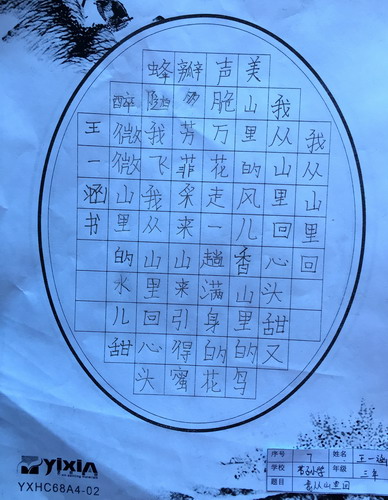 我从山里回
我从山里回心头甜又
美山里的风儿香山里的鸟
声脆万花走一趟满身的花
瓣多芳菲采来山来引得蜜
蜂随我飞我从山里回心头
醉微微山里的水儿甜
王一涵书
YIXIN
YXHC68A4-02
序号 7 姓名 王一涵
学校 小学 年级 三年
题目 我从山里回